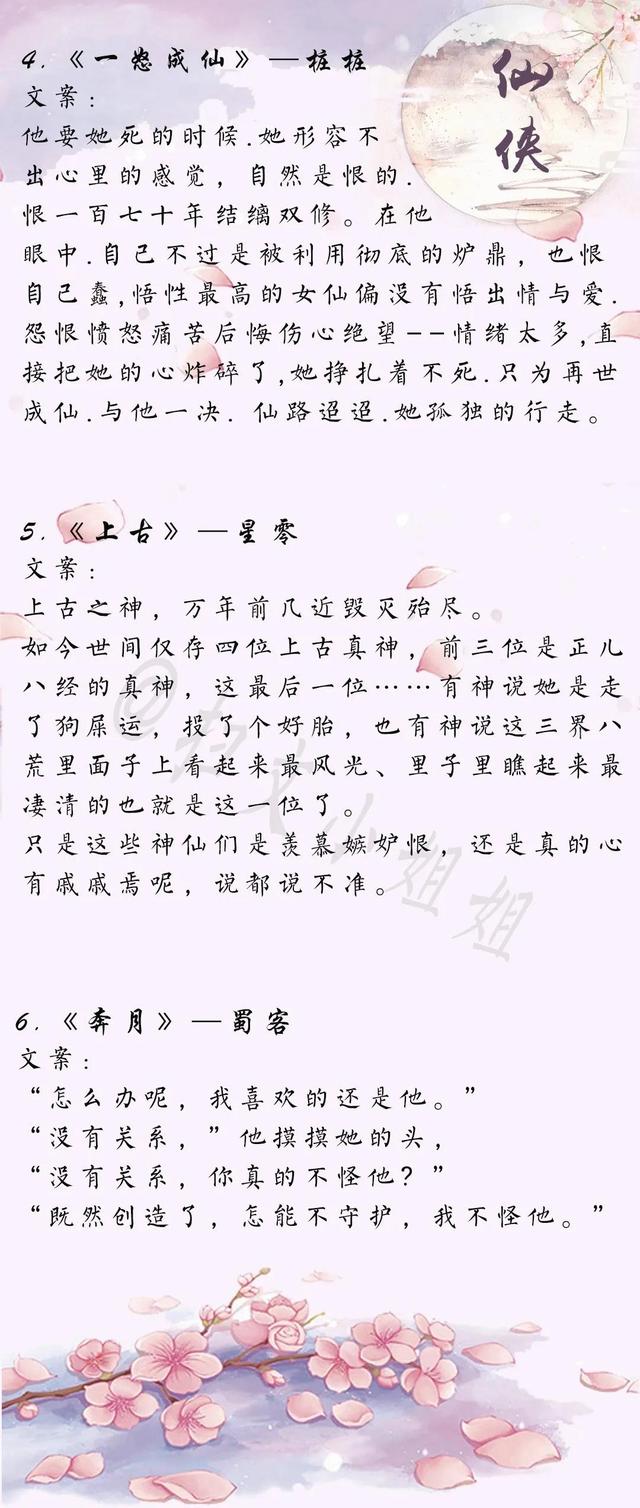 仙侠
4.《一怒成仙》—桩桩
文案：
他要她死的时候.她形容不
出心里的感觉，自然是恨的.
恨一百七十年结缡双修。在他
眼中.自己不过是被利用彻底的炉鼎，也恨
自己蠢,悟性最高的女仙偏没有悟出情与爱.
怨恨愤怒痛苦后悔伤心绝望--情绪太多,直
接把她的心炸碎了,她挣扎着不死.只为再世
成仙.与他一决. 仙路迢迢.她孤独的行走。
5.《上古》—星零
文案：
上古之神，万年前几近毁灭殆尽。
如今世间仅存四位上古真神，前三位是正儿
八经的真神，这最后一位……有神说她是走
了狗屎运，投了个好胎，也有神说这三界八
荒里面子上看起来最风光、里子里瞧起来最
凄清的也就是这一位了。
只是这些神仙们是羡慕嫉妒恨，还是真的心
有戚戚焉呢，说都说不准。
6.《奔月》—蜀客
文案：
“怎么办呢，我喜欢的还是他。”
“没有关系，”他摸摸她的头，
“没有关系，你真的不怪他？”
“既然创造了，怎能不守护，我不怪他。”
@推文小姐姐